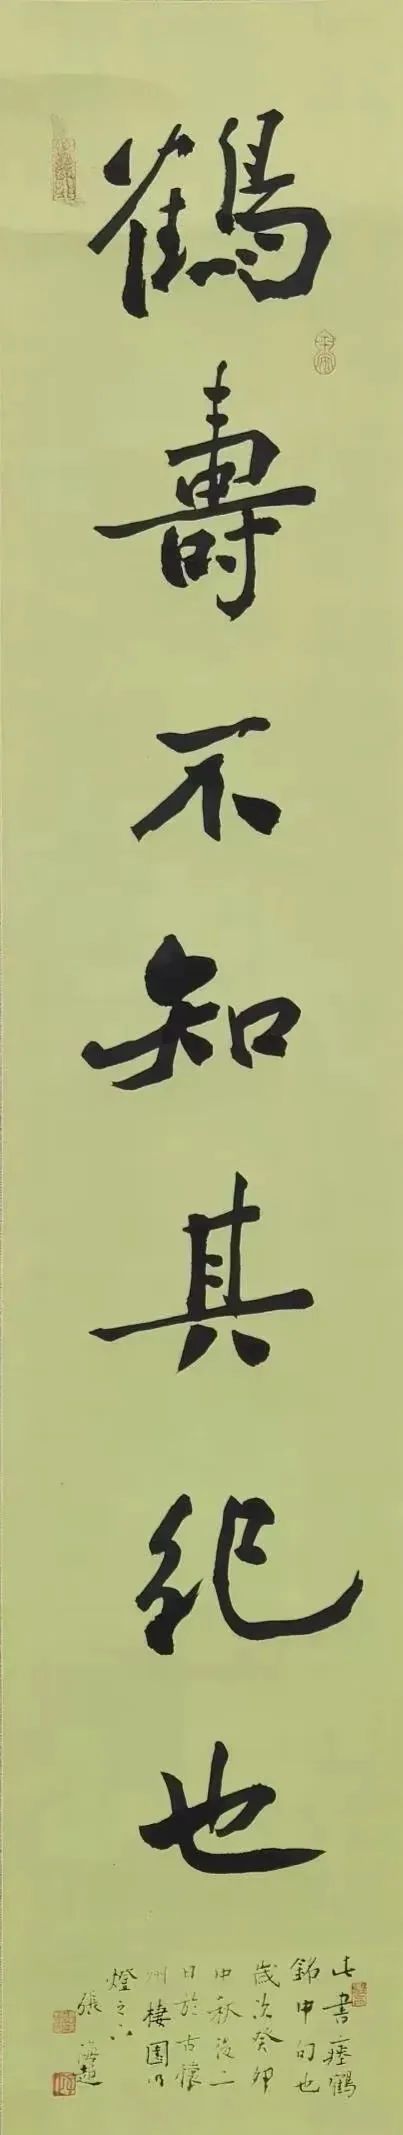 鶴壽不知其紀也
此書瘞鶴
銘中句也
歲次癸卯
中秋後二
日於古懷
州棲園
燈之下
張海超